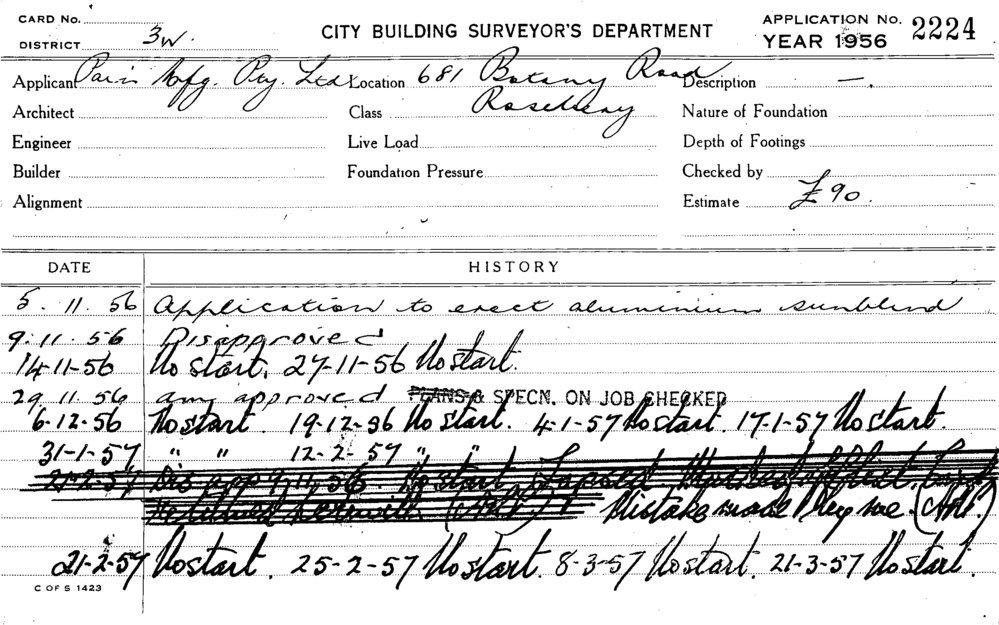 CARD No.
DISTRICT 3W.
CITY BUILDING SURVEYOR'S DEPARTMENT
APPLICATION No. 2224
YEAR 1956
Applicant Paris Mfg. Pty. Ltd Location 681 Botany Road Description —
Architect Class Rosebery Nature of Foundation
Engineer Live Load Depth of Footings
Builder Foundation Pressure Checked by
Alignment Estimate £90.
DATE HISTORY
5.11.56 Application to erect aluminium sunblind
9.11.56 Disapproved
14-11-56 No start. 27-11-56 No start.
29.11.56 approved PLANS & SPECN. ON JOB CHECKED
6-12-56 No start. 19-12-56 No start. 4-1-57 No start. 17-1-57 No start.
31-1-57 " " 12-2-57 " "
21-2-57 Dis app 9.11.56. No start Lapsed
Returned herewith Mistake made by me.
21-2-57 No start. 25-2-57 No start. 8-3-57 No start. 21-3-57 No start.
C OF S 1423